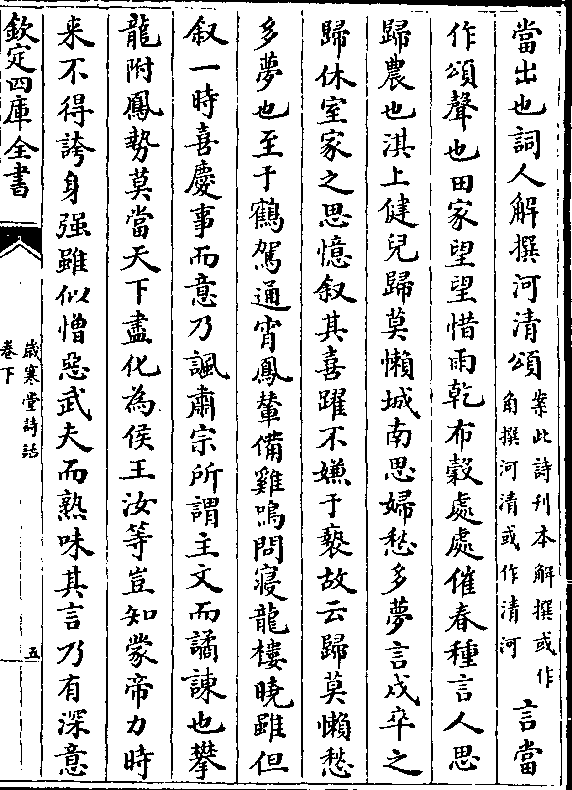 當出也詞人解撰河清頌
案此詩刊本解撰或作
角撰河清或作清河
言當
作頌聲也田家望望惜雨乾布穀處處催春種言人思
歸農也淇上健兒歸莫懶城南思婦愁多夢言戍卒之
歸休室家之思憶叙其喜躍不嫌于褻故云歸莫懶愁
多夢也至于鶴駕通宵鳳輦備雞鳴問寢龍樓曉雖但
叙一時喜慶事而意乃諷肅宗所謂主文而譎諫也攀
龍附鳳勢莫當天下盡化為侯王汝等豈知蒙帝力時
来不得誇身强雖似憎惡武夫而熟味其言乃有深意
欽定四庫全書
歲寒堂詩話
卷下
五